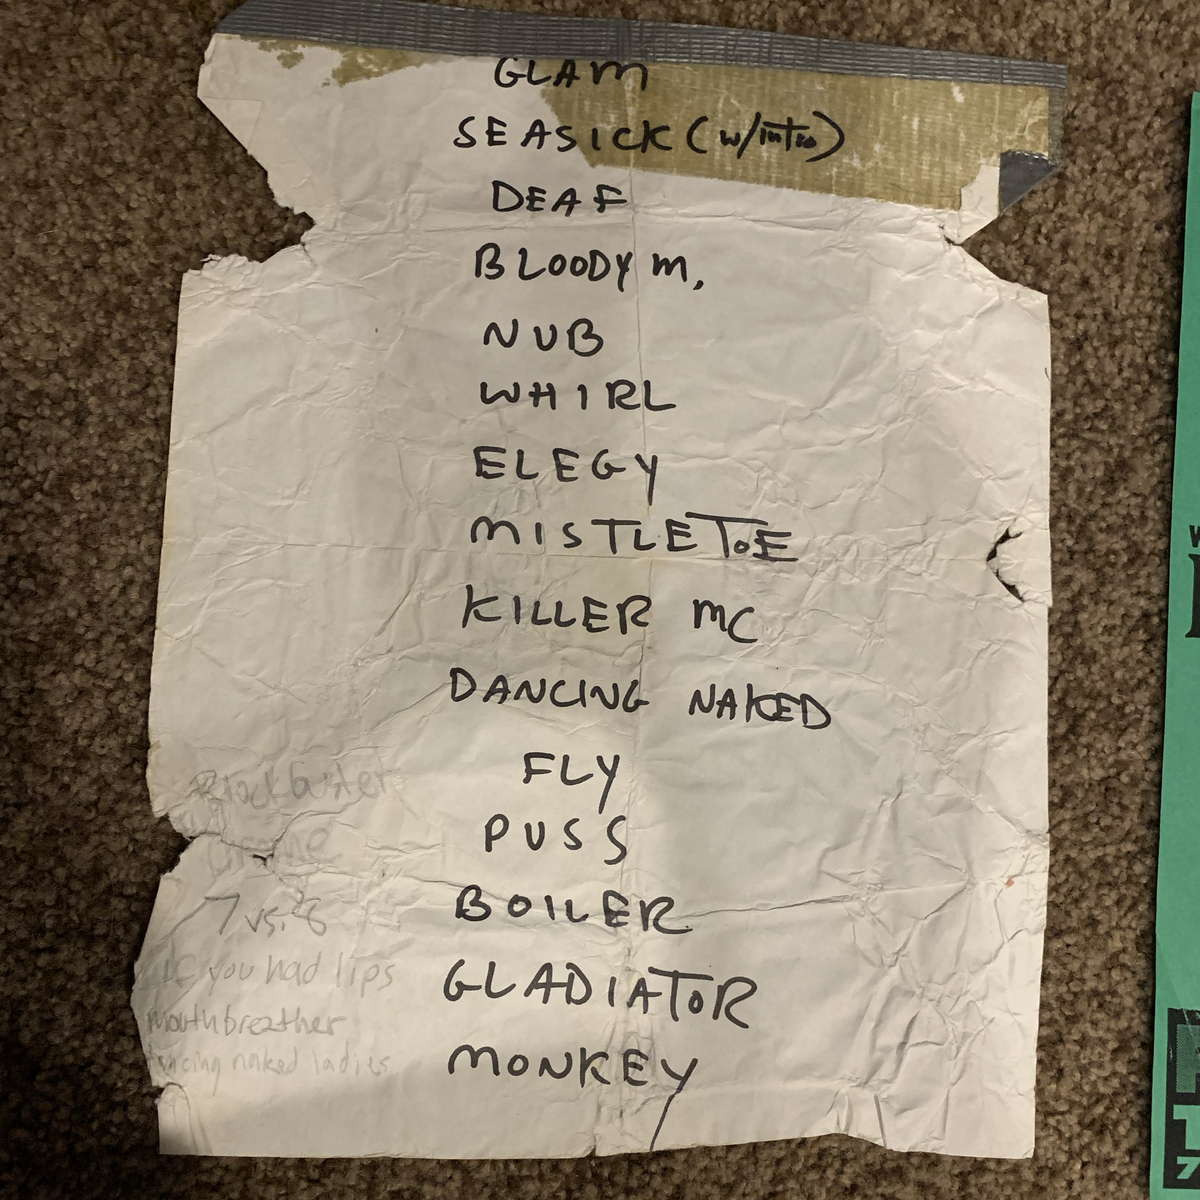 GLAM
SEASICK (w/intro)
DEAF
BLOODY M.
NUB
WHIRL
ELEGY
MISTLETOE
KILLER MC
DANCING NAKED
FLY
PUSS
BOILER
GLADIATOR
MONKEY
Blockbuster
Chrome
7 vs. 8
If you had lips
mouthbreather
ncing naked ladies
W
7